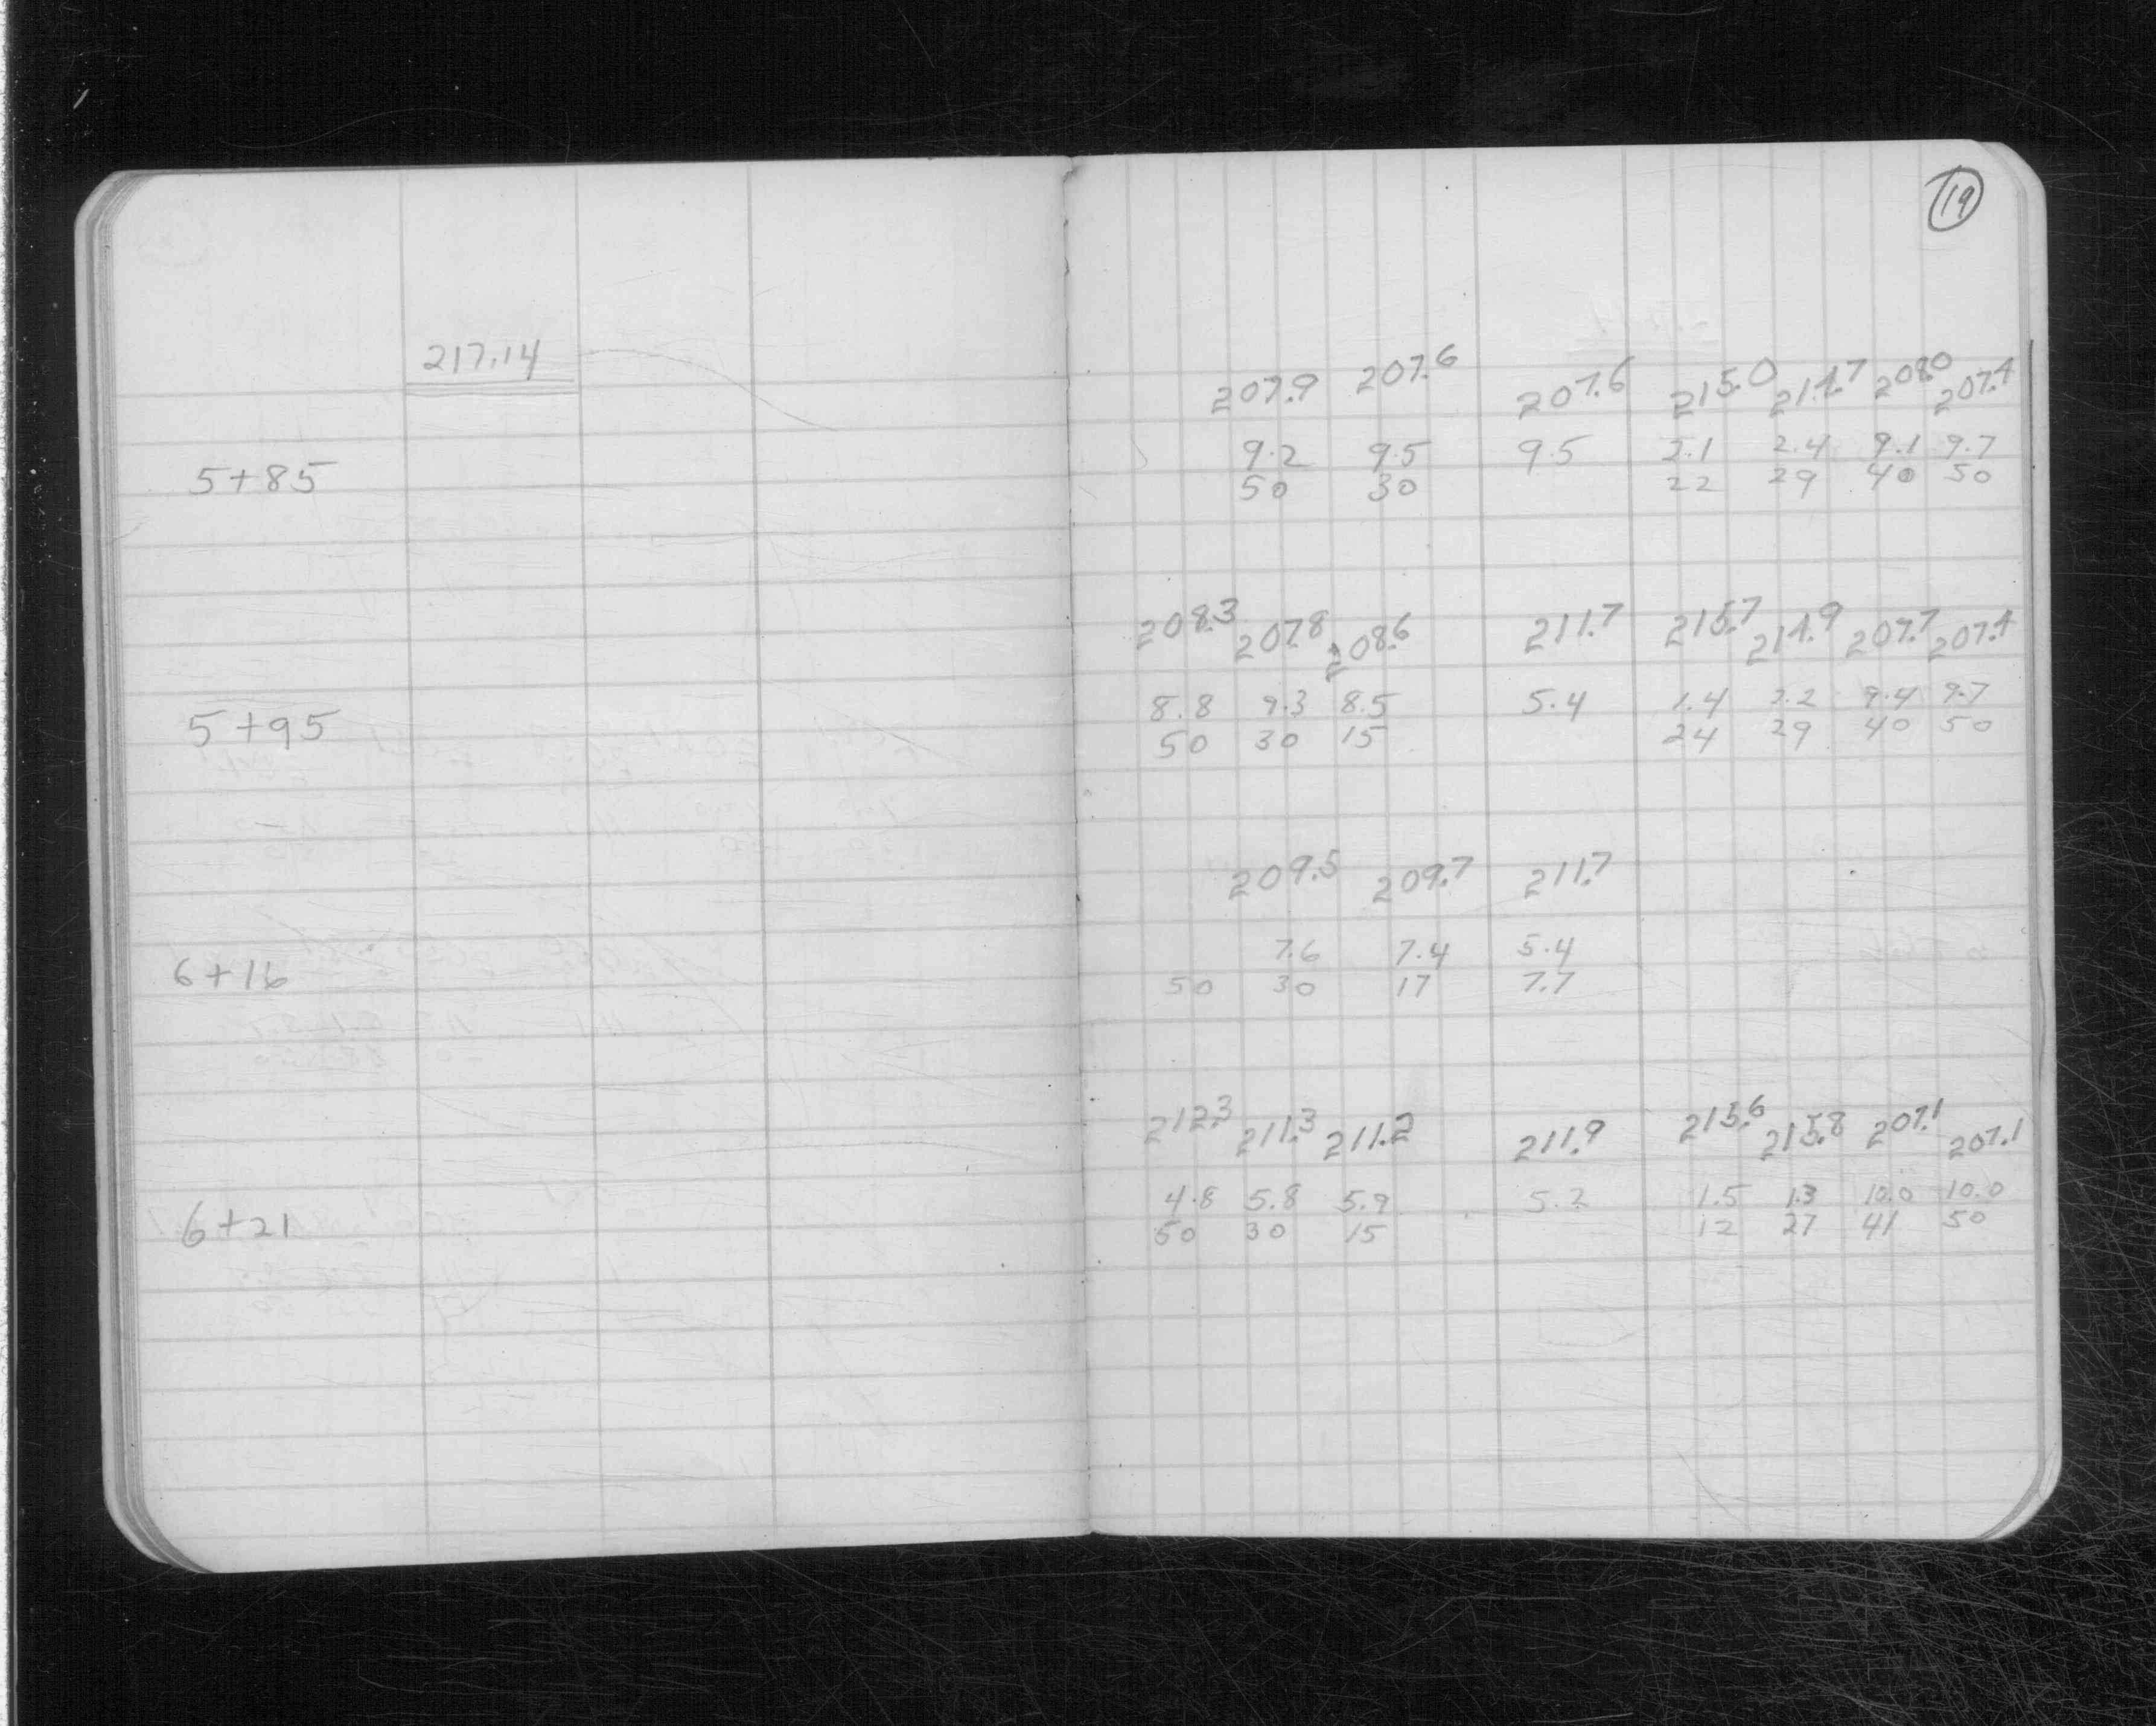 19
217.14
207.9 207.6 207.6 215.0 214.7 208.0 207.4
5+85 9.2 9.5 9.5 2.1 2.4 9.1 9.7
50 30 22 29 40 50
208.3 207.8 208.6 211.7 215.7 214.9 207.7 207.4
5+95 8.8 9.3 8.5 5.4 1.4 2.2 9.4 9.7
50 30 15 24 29 40 50
209.5 209.7 211.7
6+16 7.6 7.4 5.4
50 30 17 7.7
212.3 211.3 211.2 211.9 215.6 215.8 207.1 207.1
6+21 4.8 5.8 5.9 5.2 1.5 1.3 10.0 10.0
50 30 15 12 27 41 50